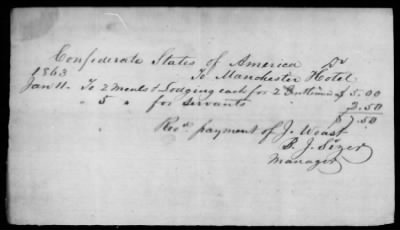 Confederate States of America Dr
1863 To Manchester Hotel
Jan 11. To 2 meals & Lodging each for 2 Gentlemen $5.00
" 5 " for servants 2.50
$7.50
Recd payment of J. Weast
B. J. Sizer
Manager